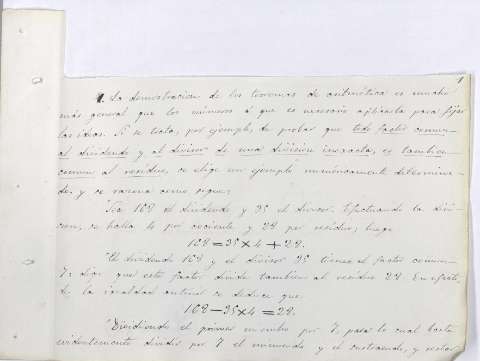 1
1. La demostracion de los teoremas de aritmética es mucho
más general que los números á que es necesario aplicarla para fijar
las ideas. Si se trata, por ejemplo, de probar que todo factor comun
al dividendo y al divisor de una division inexacta, es tambien
comun al residuo, se elige un ejemplo numéricamente determina-
do, y se razona como sigue:
"Sea 168 el dividendo y 35 el divisor. Efectuando la divi-
sion, se halla 4 por cociente y 28 por residuo; luego
168 = 35 × 4 + 28.
"El dividendo 168 y el divisor 35 tienen el factor comun
7: digo que este factor divide tambien al residuo 28. En efecto,
de la igualdad anterior se deduce que
168 - 35 × 4 = 28.
"Dividiendo el primer miembro por 7, para lo cual basta
evidentemente dividir por 7 el minuendo y el sustraendo, y